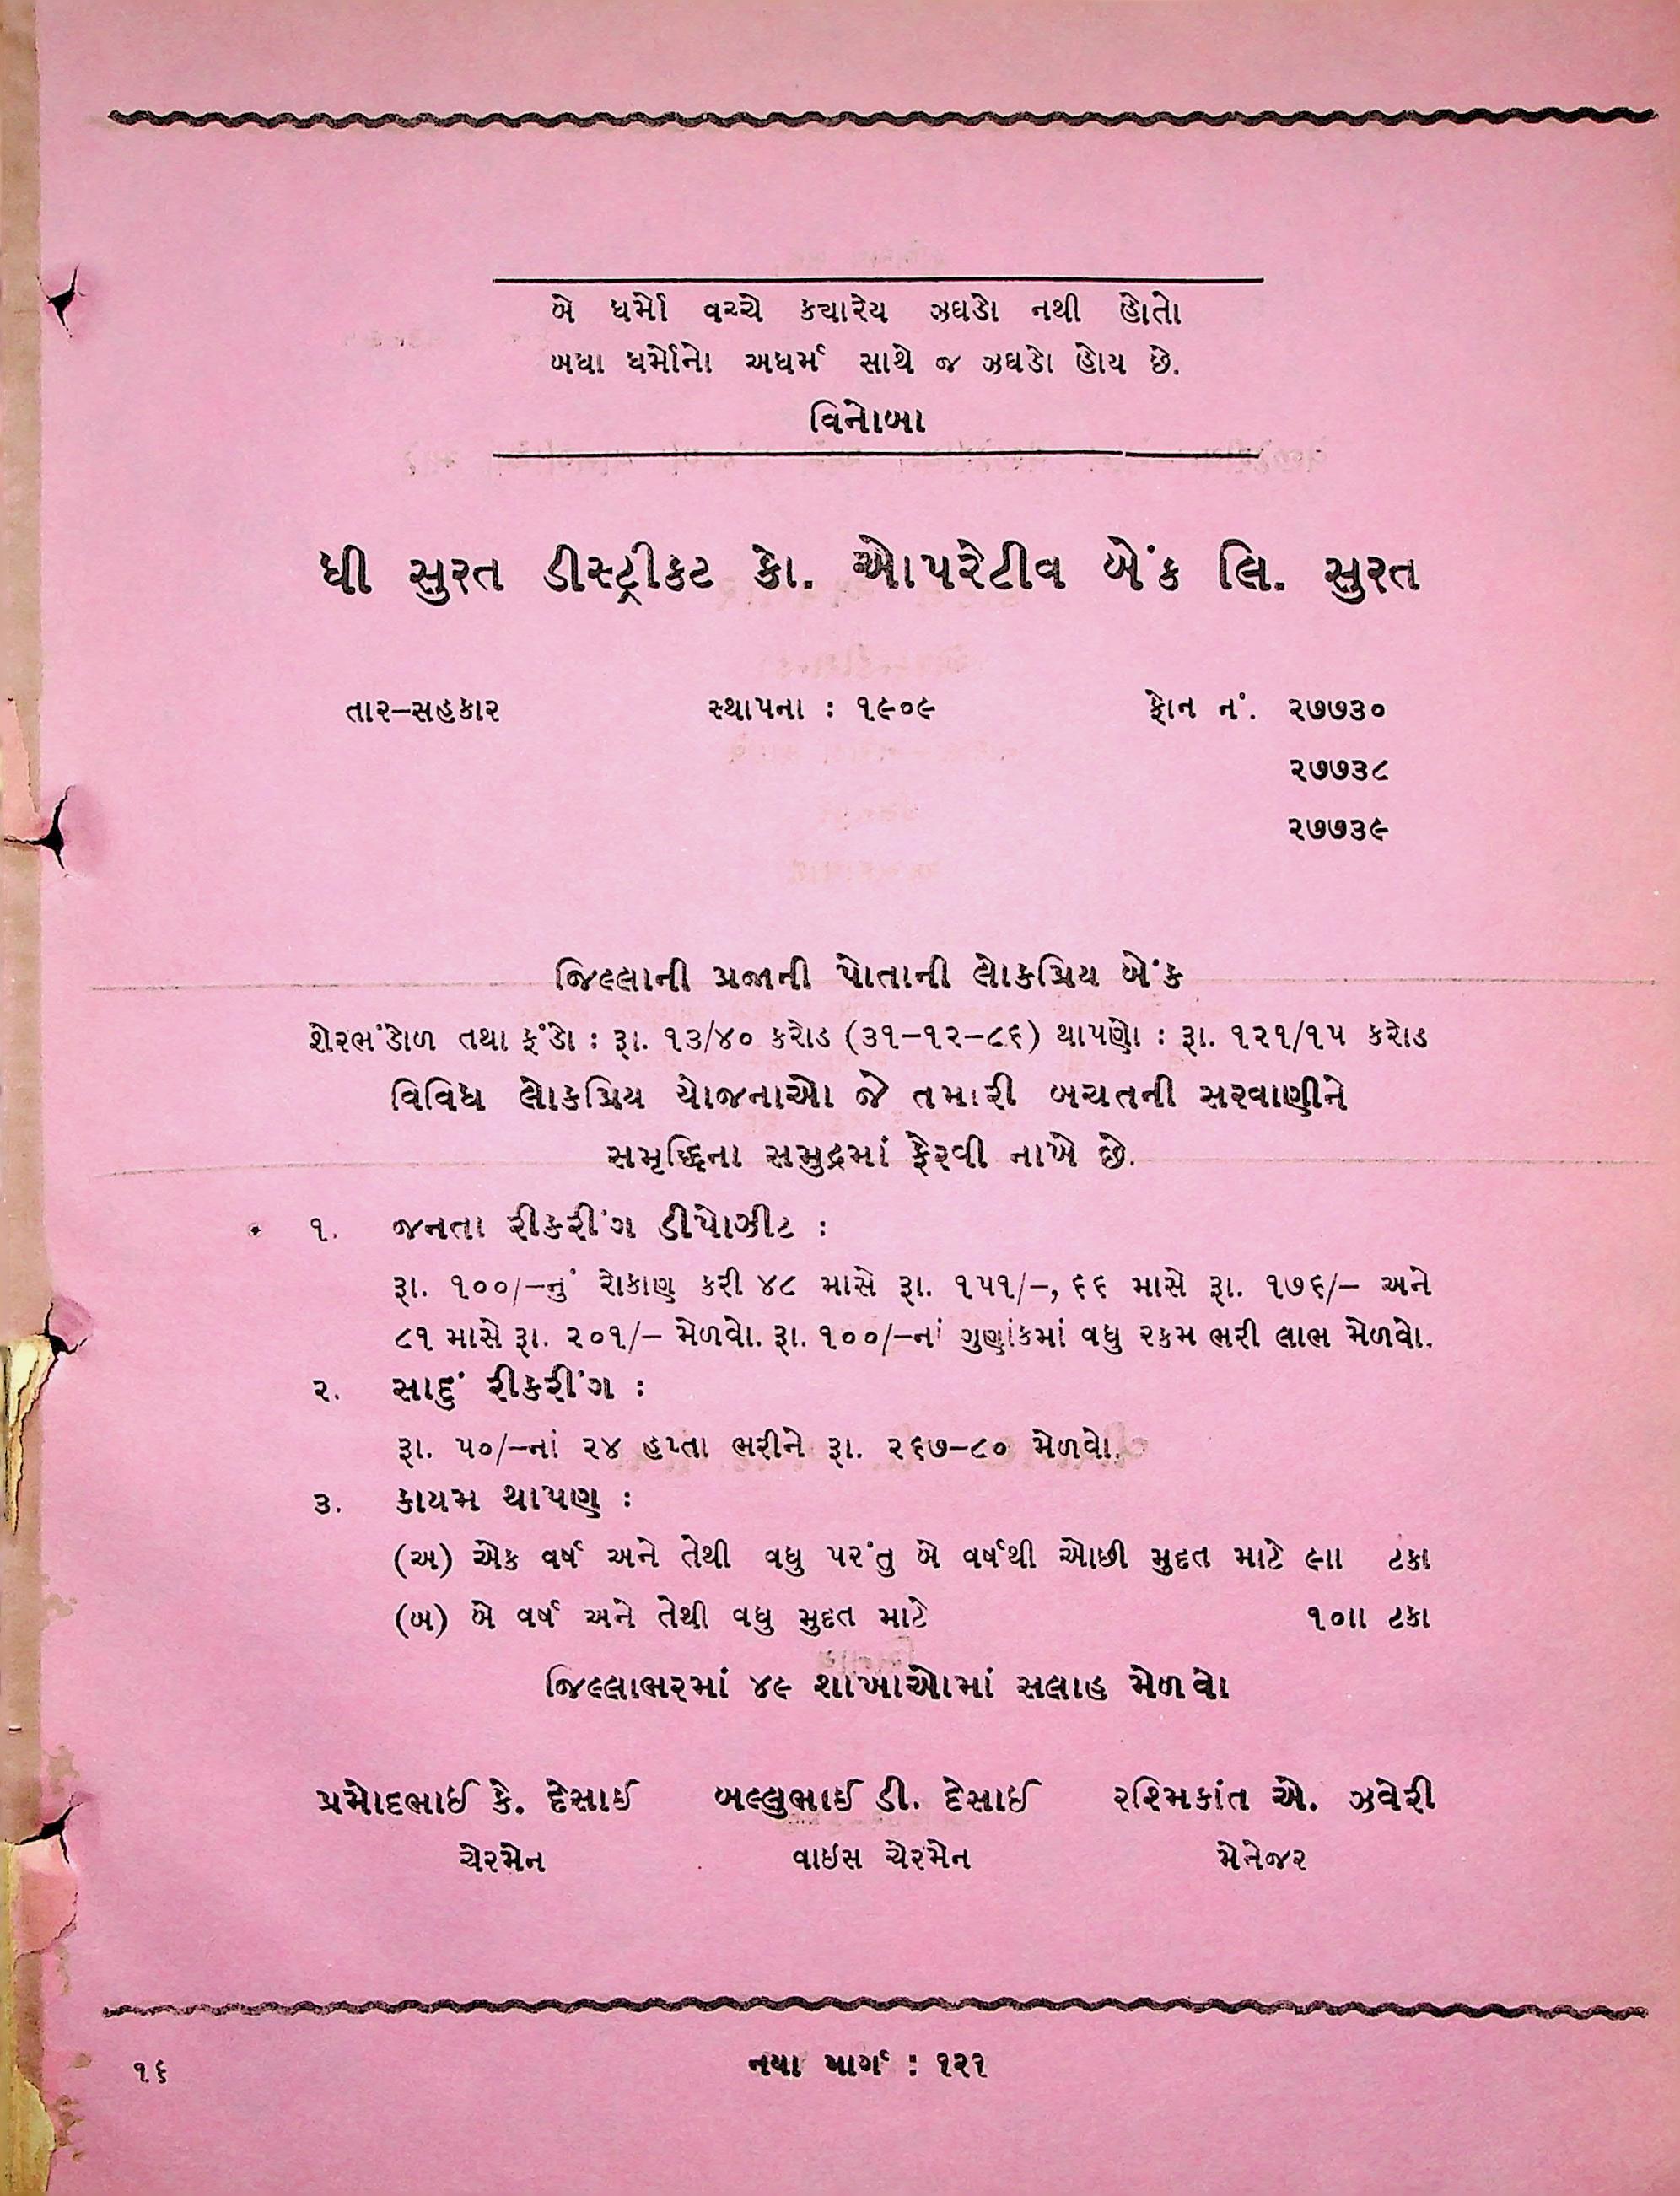 બે ધર્મો વચ્ચે ક્યારેય ઝઘડો નથી હોતો
બધા ધર્મોનો અધર્મ સાથે જ ઝઘડો હોય છે.
વિનોબા
ધી સુરત ડીસ્ટ્રીકટ કો. ઓપરેટીવ બેંક લિ. સુરત
તાર-સહકાર સ્થાપના : ૧૯૦૯ ફોન નં. ૨૭૭૩૦
૨૭૭૩૮
૨૭૭૩૯
જિલ્લાની પ્રજાની પોતાની લોકપ્રિય બેંક
શેરભંડોળ તથા ફંડો : રૂા. ૧૩/૪૦ કરોડ (૩૧-૧૨-૮૬) થાપણો : રૂા. ૧૨૧/૧૫ કરોડ
વિવિધ લોકપ્રિય યોજનાઓ જે તમારી બચતની સરવાણીને
સમૃધ્ધિના સમુદ્રમાં ફેરવી નાખે છે.
૧. જનતા રીકરીંગ ડીપોઝીટ :
રૂા. ૧૦૦/-નું રોકાણ કરી ૪૮ માસે રૂા. ૧૫૧/-, ૬૬ માસે રૂા. ૧૭૬/- અને
૮૧ માસે રૂા. ૨૦૧/- મેળવો. રૂા. ૧૦૦/-નાં ગુણાંકમાં વધુ રકમ ભરી લાભ મેળવો.
૨. સાદું રીકરીંગ :
રૂા. ૫૦/-નાં ૨૪ હપ્તા ભરીને રૂા. ૨૬૭-૮૦ મેળવો.
૩. કાયમ થાપણ :
(અ) એક વર્ષ અને તેથી વધુ પરંતુ બે વર્ષથી ઓછી મુદત માટે ૯ાા ટકા
(બ) બે વર્ષ અને તેથી વધુ મુદત માટે ૧૦ાા ટકા
જિલ્લાભરમાં ૪૯ શાખાઓમાં સલાહ મેળવો
પ્રમોદભાઈ કે. દેસાઈ બલ્લુભાઈ ડી. દેસાઈ રશ્મિકાંત એ. ઝવેરી
ચેરમેન વાઈસ ચેરમેન મેનેજર
૧૬ નયા માર્ગ : ૧૨૧